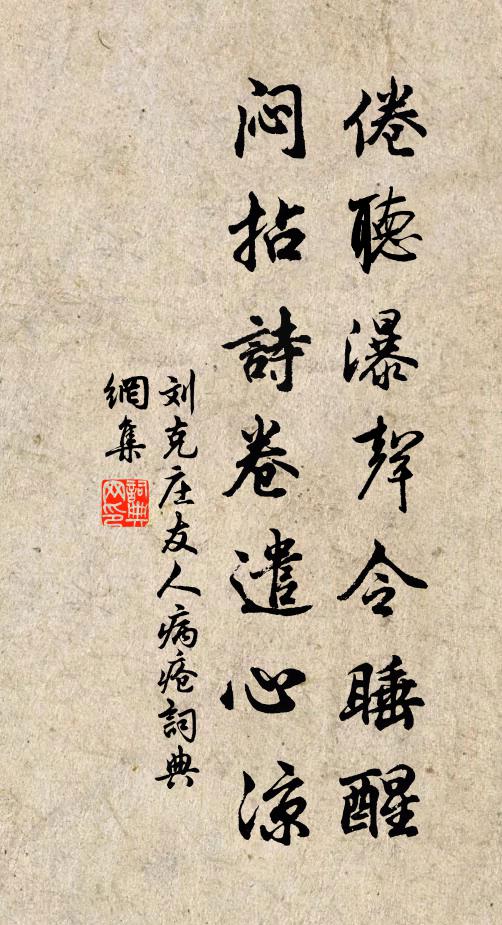 倦聽瀑聲令睡醒
闷拈詩卷遣心涼
刘克庄友人病疮詞典
網集
詞典
网印